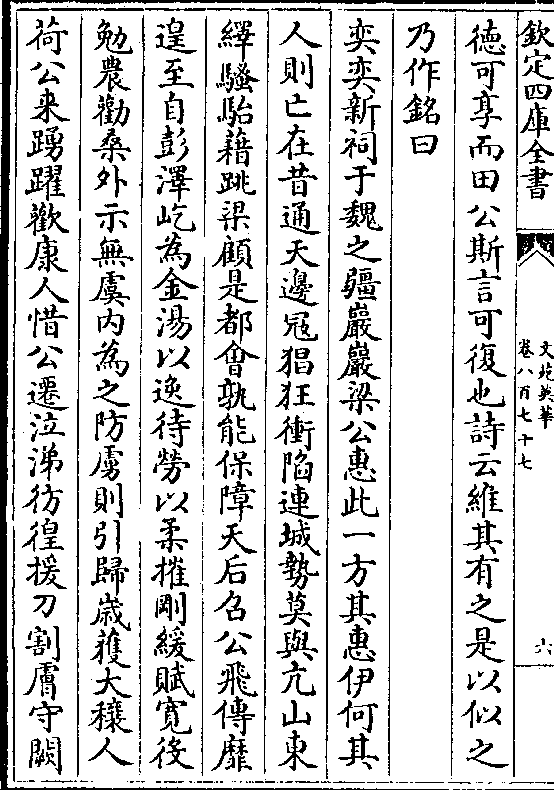 欽定四庫全書
文苑英華
卷八百七十七
六
德可享而田公斯言可復也詩云維其有之是以似之
乃作銘曰
奕奕新祠于魏之疆巖巖梁公惠此一方其惠伊何其
人則亡在昔通天邊冦猖狂衝陷連城勢莫與亢山東
繹騷駘藉跳梁顧是都會孰能保障天后召公飛傳靡
遑至自彭澤屹為金湯以逸待勞以柔摧剛緩賦寛役
勉農勸桑外示無虞内為之防虜則引歸歲獲大穰人
荷公来踴躍歡康人惜公遷泣涕彷徨援刀割膚守闕